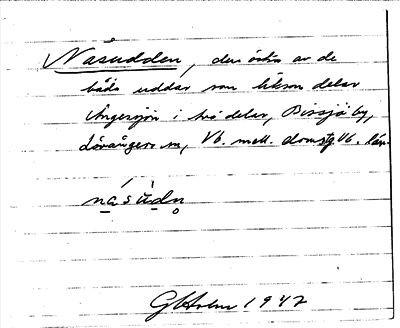 Nåsudden, den östra av de
båda uddar som liksom delar
Ångesjön i två delar, Bissjö by,
Lövångers sn, Vb. mell. domsg Vb. län
násùdn̥
GHolm 1942